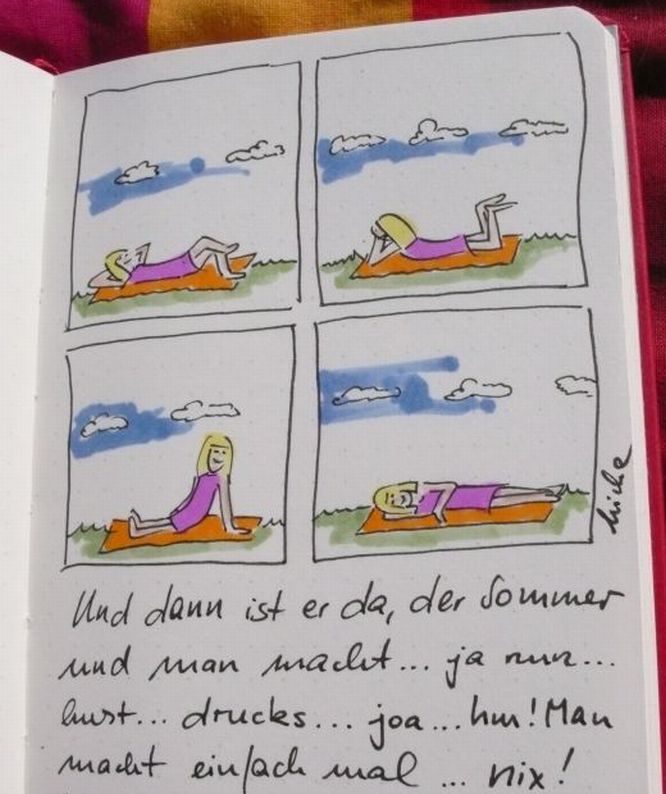 Und dann ist er da, der Sommer
und man macht... ja nun...
hust... drucks... joa... hm! Man
macht einfach mal ... nix!